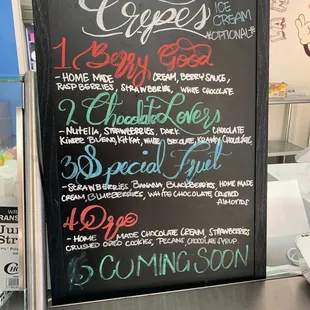 Crepes
ICE
CREAM
*OPTIONAL*
1 Berry Good
-HOME MADE CREAM, BERRY SAUCE,
RASPBERRIES, STRAWBERRIE, WHITE CHOCOLATE
2 Chocolate Lovers
-NUTELLA, STRAWBERRIES, DARK CHOCOLATE
KINDER BUENO, KITKAT, WHITE CHOCOLATE,
3 Special Fruit
-STRAWBERRIES BANANA, BLACKBERRIES, HOME MADE
CREAM, BLUEBERRIES, WHITE CHOCOLATE, CRUSHED
ALMONDS
4 Oreo
-HOME MADE CHOCOLATE CREAM, STRAWBERRIES
CRUSHED OREO COOKIES, PECANS, CHOCOLATE SYRUP
5 CUMING SOON